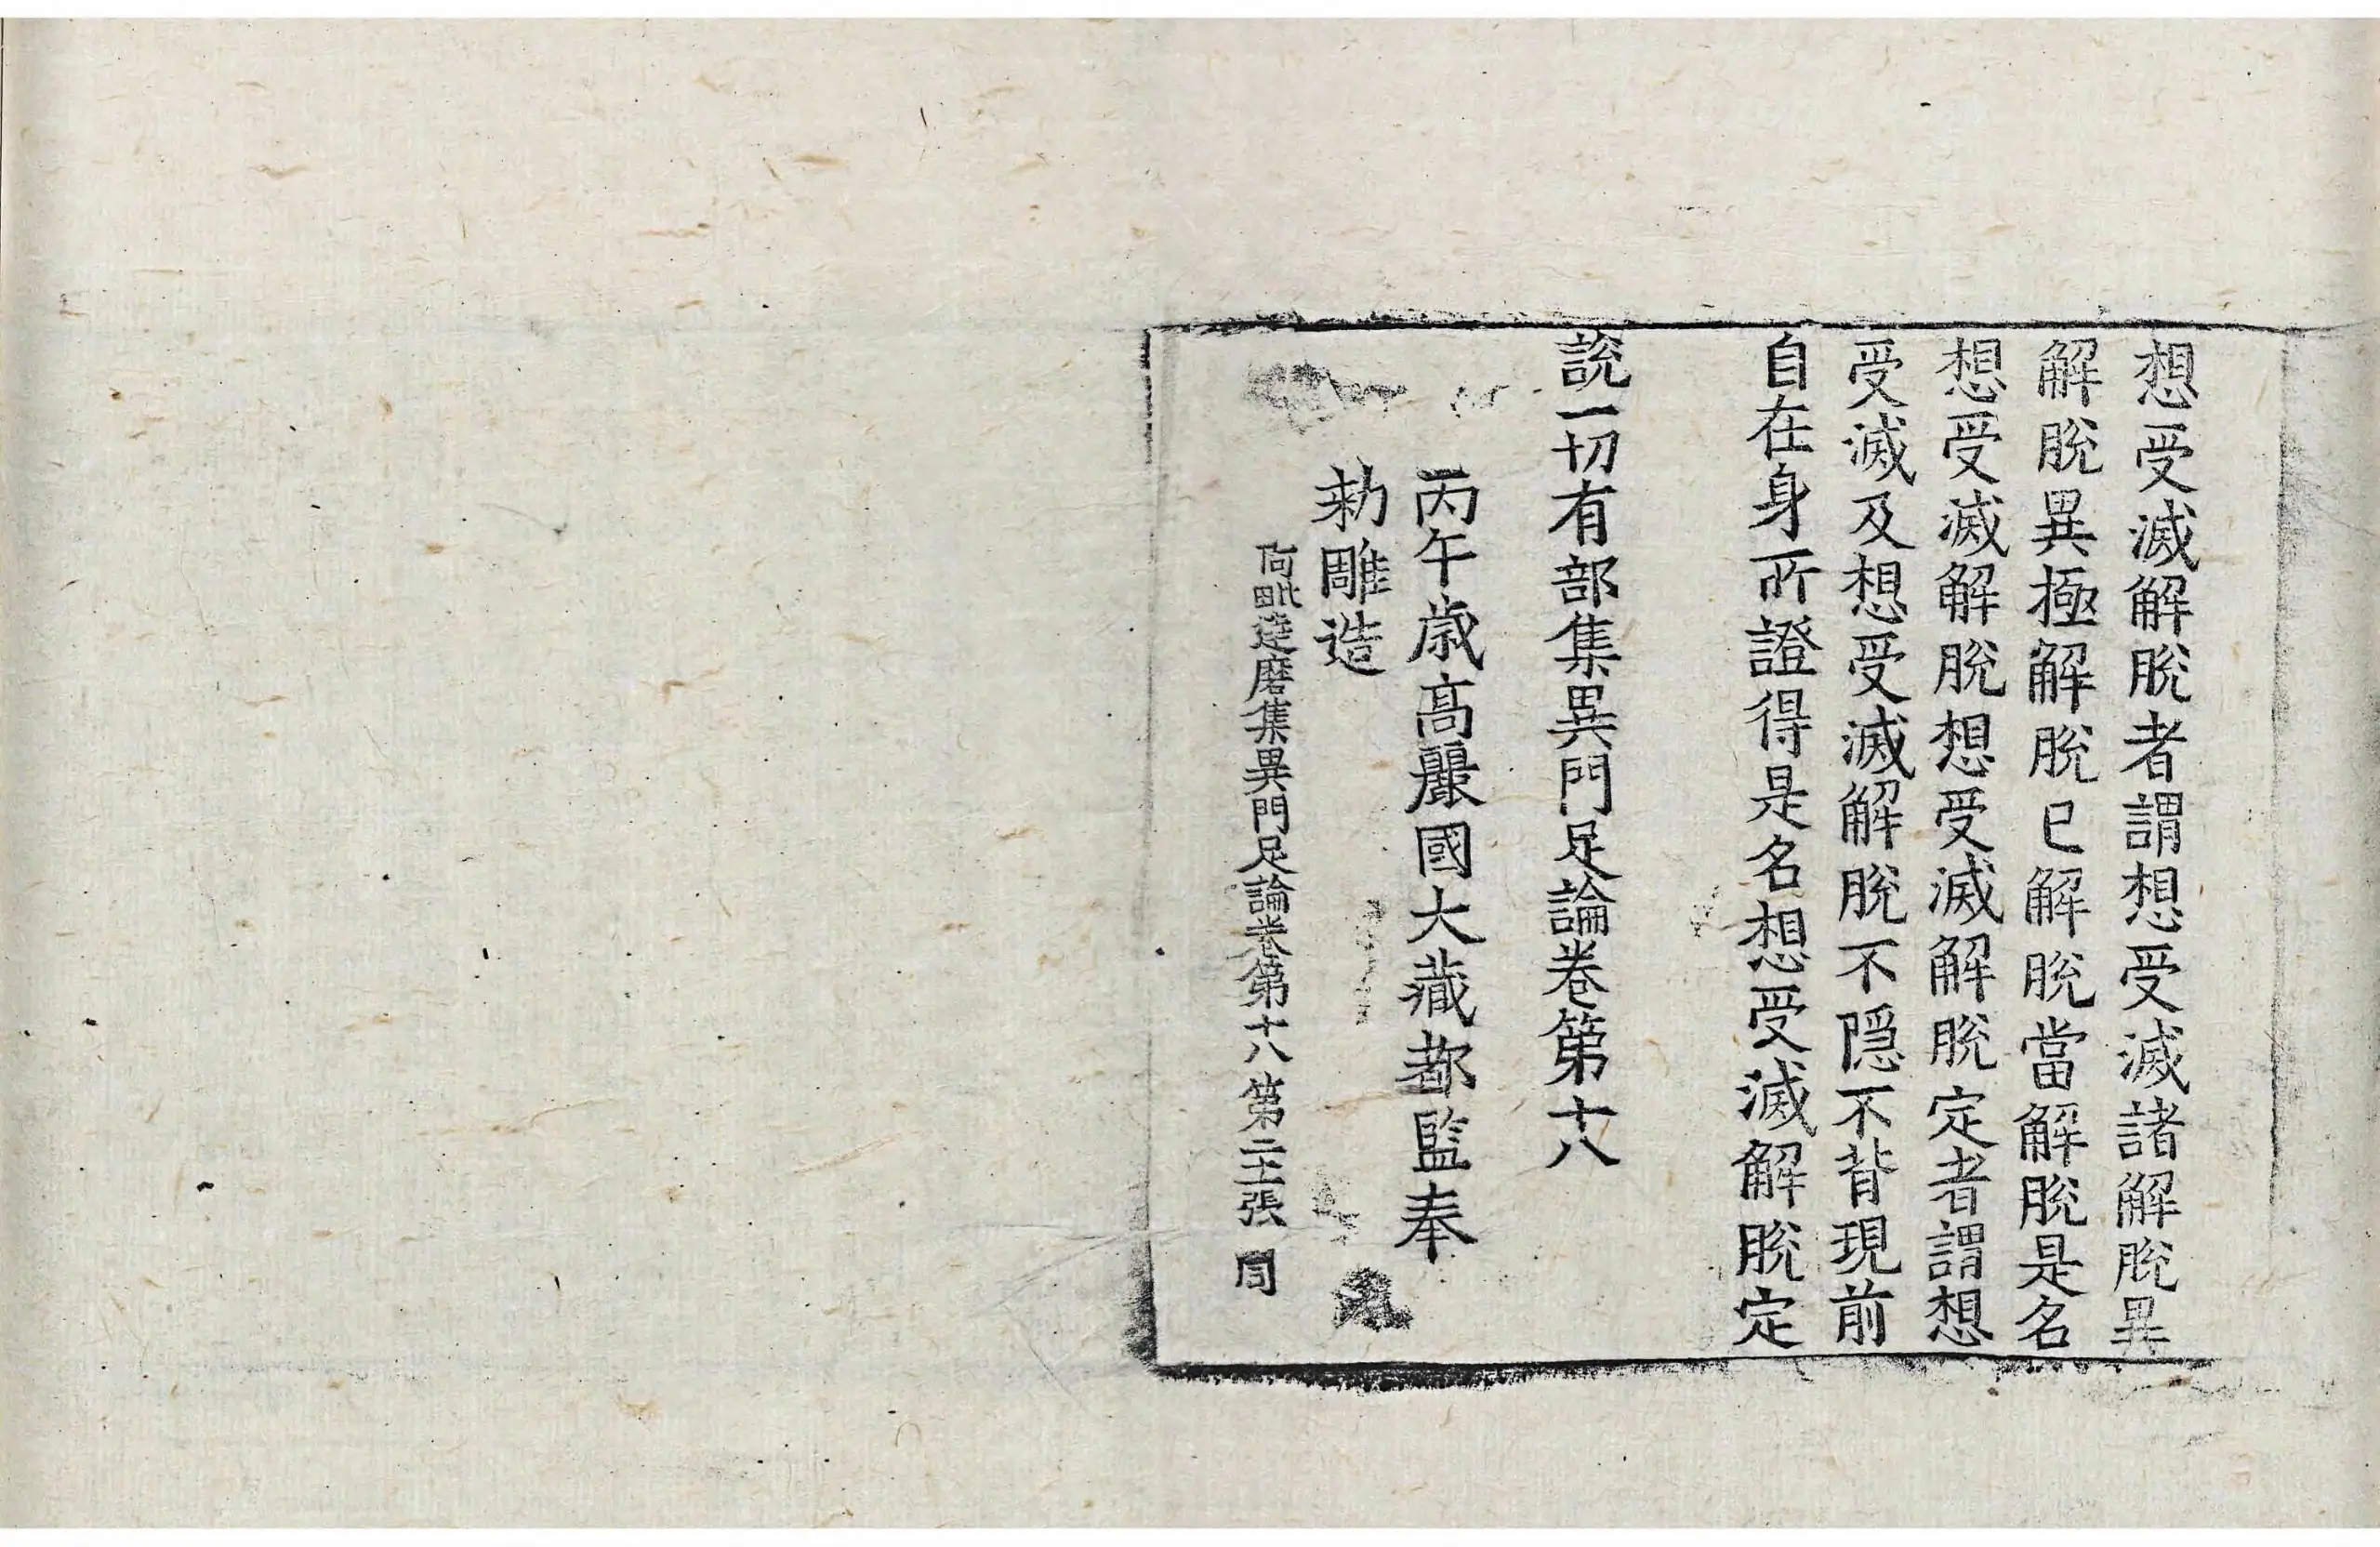 想受滅解脫者謂想受滅諸解脫異
解脫異極解脫已解脫當解脫是名
想受滅解脫想受滅解脫定者謂想
受滅及想受滅解脫不隱不背現前
自在身所證得是名想受滅解脫定
說一切有部集異門足論卷第十八
丙午歲高麗國大藏都監奉
勑雕造
阿毗達磨集異門足論卷第十八 第二十張 同